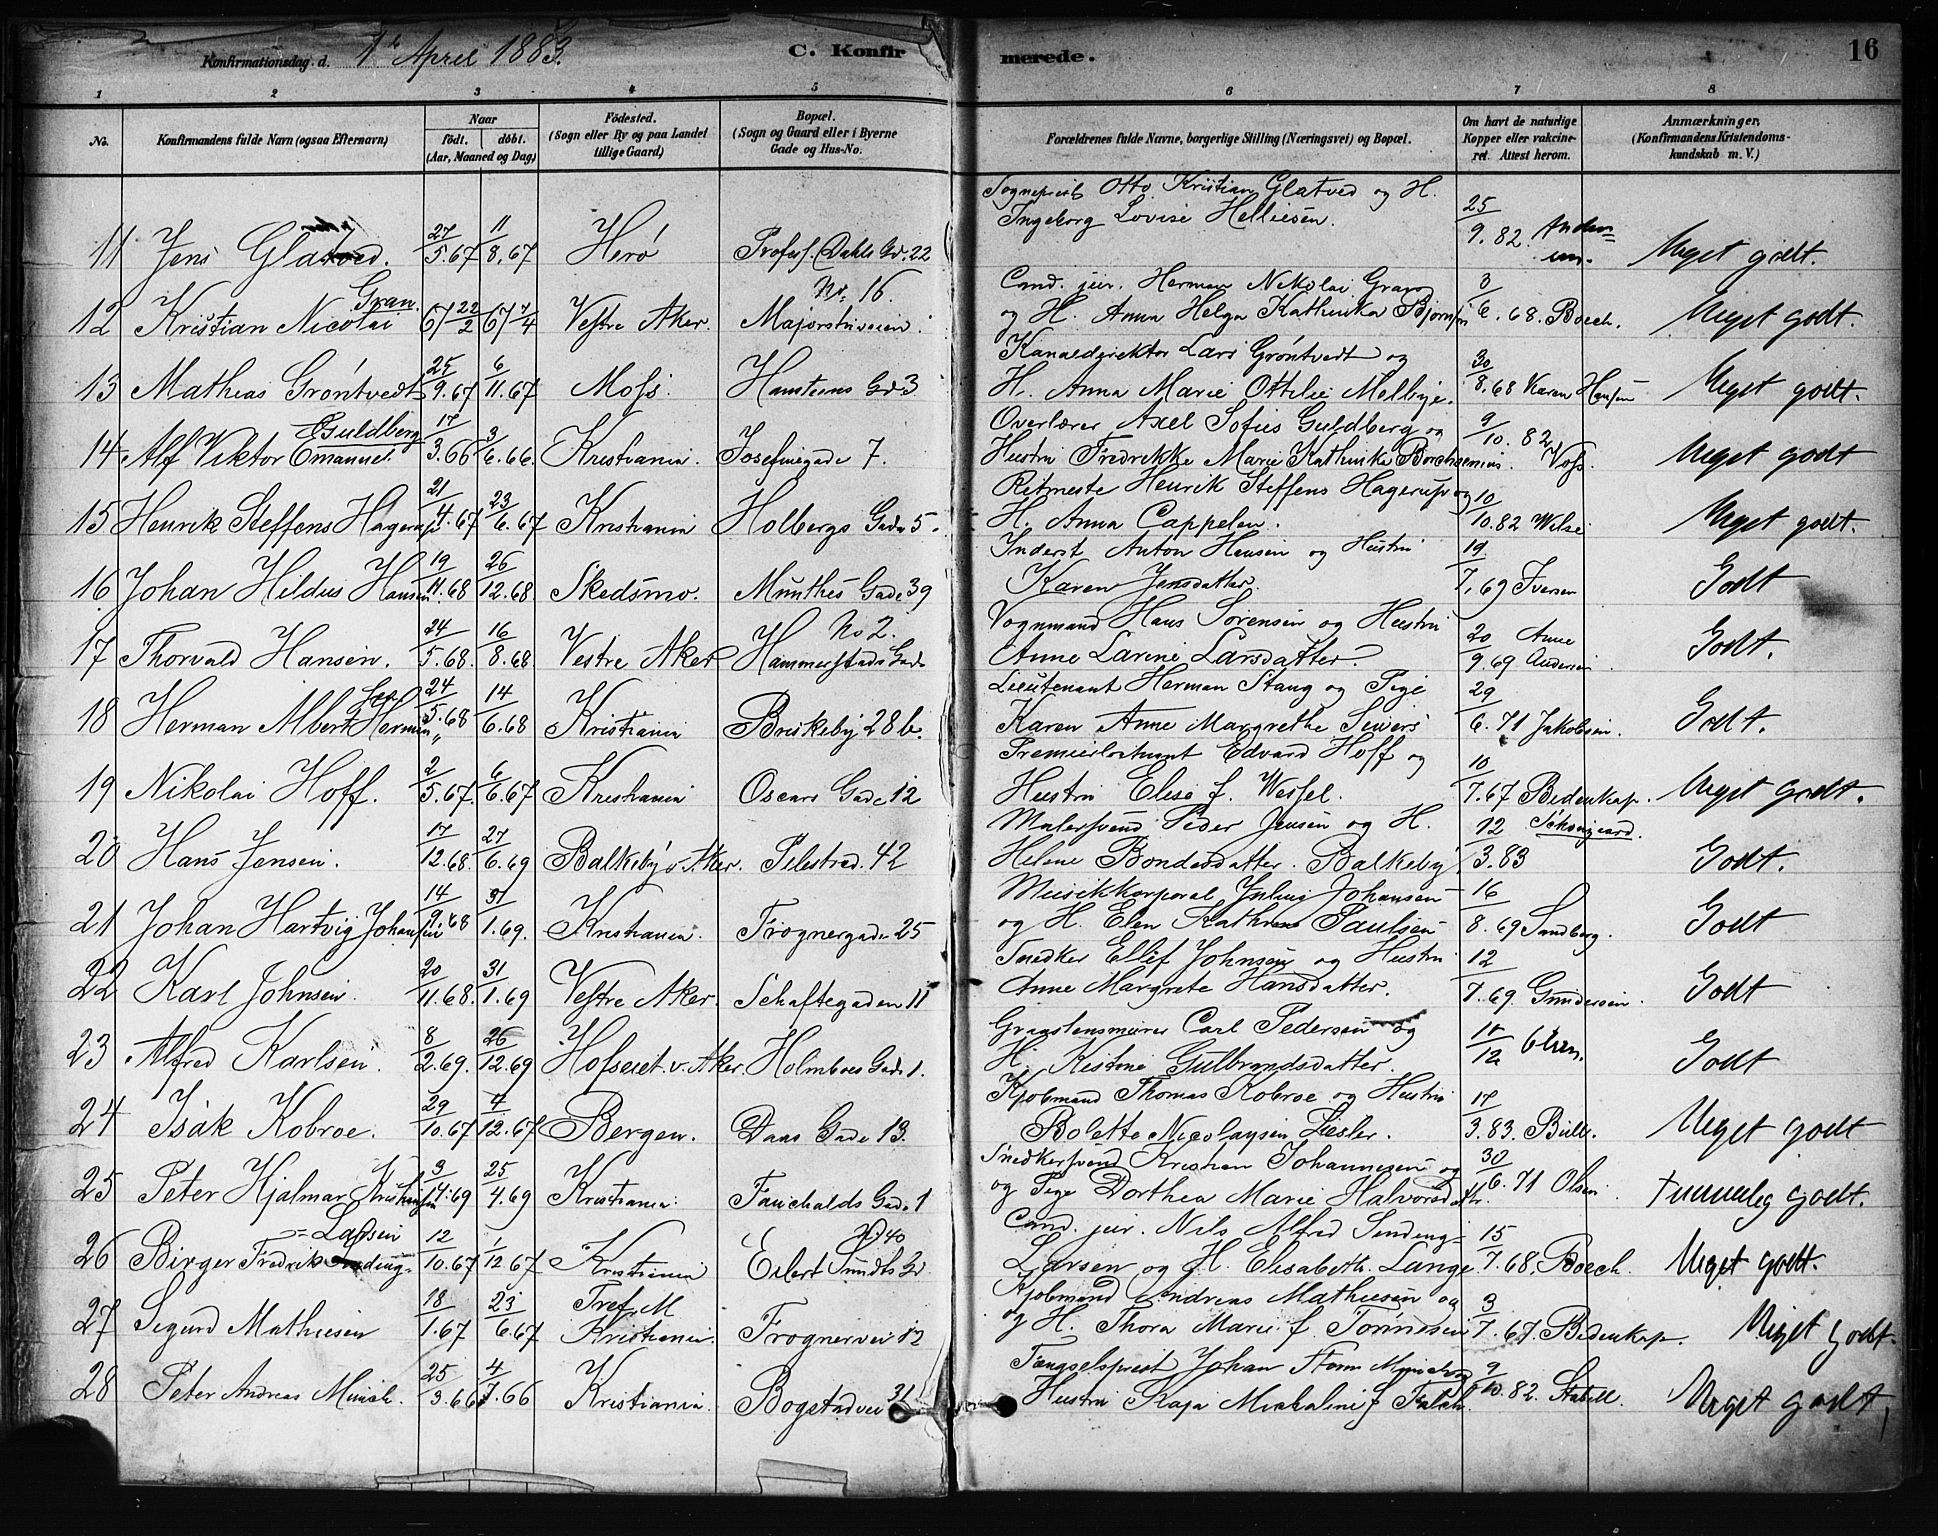 Konfirmationsdag d. 1ste April 1883.
C. Konfirmerede.
16
1 2 3 4 5 6 7 8
No. Konfirmandens fulde Navn (ogsaa Efternavn) Naar født. døbt. (Aar, Maaned og Dag) Fødested. (Sogn eller By og paa Landet tillige Gaard) Bopæl. (Sogn og Gaard eller i Byerne Gade og Hus-No. Forældrenes fulde Navne, borgerlige Stilling (Næringsvei) og Bopæl. Om havt de naturlige Kopper eller vakcineret. Attest herom. Anmærkninger. (Konfirmandens Kristendomskundskab m. V.)
11 Jens Glatved. 27/5.67 11/8.67 Herö Profes. Dahls Gd. 22 Sognepræst Otto Kristian Glatved og H. Ingeborg Lovise Helliesen. 25/9.82. Meget godt.
12 Kristian Nicolai Gran 67 22/2 67 7/4 Vestre Aker. Majorstuveien No. 16. Cand. jur. Herman Nikolai Gran og H. Anna Helga Kathinka Bjørnsen 3/6.68. Boech. Meget godt.
13 Mathias Gröntvedt 25/9.67 6/11.67 Moss. Hansteens Gd. 3 Kanaldirektör Lars Gröntvedt og H. Anna Marie Ottilie Mellbye. 30/8.68 Karen Hansen Meget godt.
14 Alf Viktor Emanuel Guldberg 17/3.66 3/6.66. Kristiania. Josefinegade 7. Overlærer Axel Sofus Guldberg og Hustru Fredrikke Marie Kathinka Borchsenius. 9/10.82 Voss. Meget godt
15 Henrik Steffens Hagerup 21/4.67 23/6.67 Kristiania Holbergs Gade 5. Ritmester Henrik Steffens Hagerup og H. Anna Cappelen. 10/10.82 Wilse Meget godt.
16 Johan Hildus Hansen 19/11.68 26/12.68 Skedsmo. Munthes Gade 39 Inderst Anton Hansen og Hustru Karen Jensdatter. 19/7.69 Iversen Godt
17 Thorvald Hansen. 24/5.68. 16/8.68 Vestre Aker Hammerstads Gade No 2. Vognmand Hans Sörensen og Hustru Anne Larine Larsdatter. 20/9.69 Anne Andersen Godt.
18 Herman Albert Herman 24/5.68 14/6.68 Kristiania Briskeby 28 b. Lieutenant Herman Stang og Pige Karen Anne Margrethe Siwers 29/6.71 Jakobsen. Godt.
19 Nikolai Hoff. 2/5.67. 6/6.67 Kristiania Oscars Gade 12 Premierloitnant Edvard Hoff og Hustru Elise f. Wessel. 10/7.67 Bidenkap. Meget godt.
20 Hans Jensen. 17/12.68. 27/6.69 Balkeby v. Aker. Pilestræd. 42 Malersvend Peder Jensen og H. Helene Bondesdatter. Balkeby 12/3.83 Godt.
21 Johan Hartvig Johansen 14/9.68 31/1.69. Kristiania. Frognergade 25 Musikkorporal Julius Johansen og H. Elen Kathrine Paulsen 16/8.69 Sandberg. Godt
22 Karl Johnsen. 20/11.68. 31/1.69 Vestre Aker. Schaftegaden 11 Snedker Ellef Johnsen og Hustru Anne Margrete Hansdatter. 12/7.69. Gundersen. Godt
23 Alfred Karlsen. 8/2.69. 26/12.69 Hofseret v. Aker. Holmboes Gade 1. Graastensmurer Carl Pedersen og H. Kistine Gulbrandsdatter. 10/12 Olsen. Godt
24 Isak Kobroe. 29/10.67 4/12.67 Bergen. Daas Gade 13. Kjøbmand Thomas Kobroe og Hustru Bolette Nicolaysen Liesler. 17/3.83. Bull. Meget godt
25 Peter Hjalmar Kristiansen 3/4.69 25/4.69 Kristiania. Fauchalds Gade 1 Snedkersvend Kristian Johannesen og og Pige Dorthea Marie Halvorsdatr. 30/6.71 Olsen. Temmelig godt.
26 Birger Fredrik Larsen 12/10.67 1/12.67 Kristiania Eilert Sundts Gd No 40 Cand. jur. Nils Alfred Sinding-Larsen og H. Elisabeth Lange 15/7.68. Boech. Meget godt.
27 Sigurd Mathiesen 18/1.67 23/6.67 Tref. M Kristiania. Frognervei 12 Kjøbmand Andreas Mathiesen og og H. Thora Marie f Tönnesen 3/7.67. Bidenkap. Meget godt.
28 Peter Andreas Munch. 25/3.66 4/7.66 Kristiania. Bogstadvei 31 Fængselsprest Johan Storm Munch og Hustru Kaja Michaline f Falch. 9/10.82. Stabell. Meget godt,